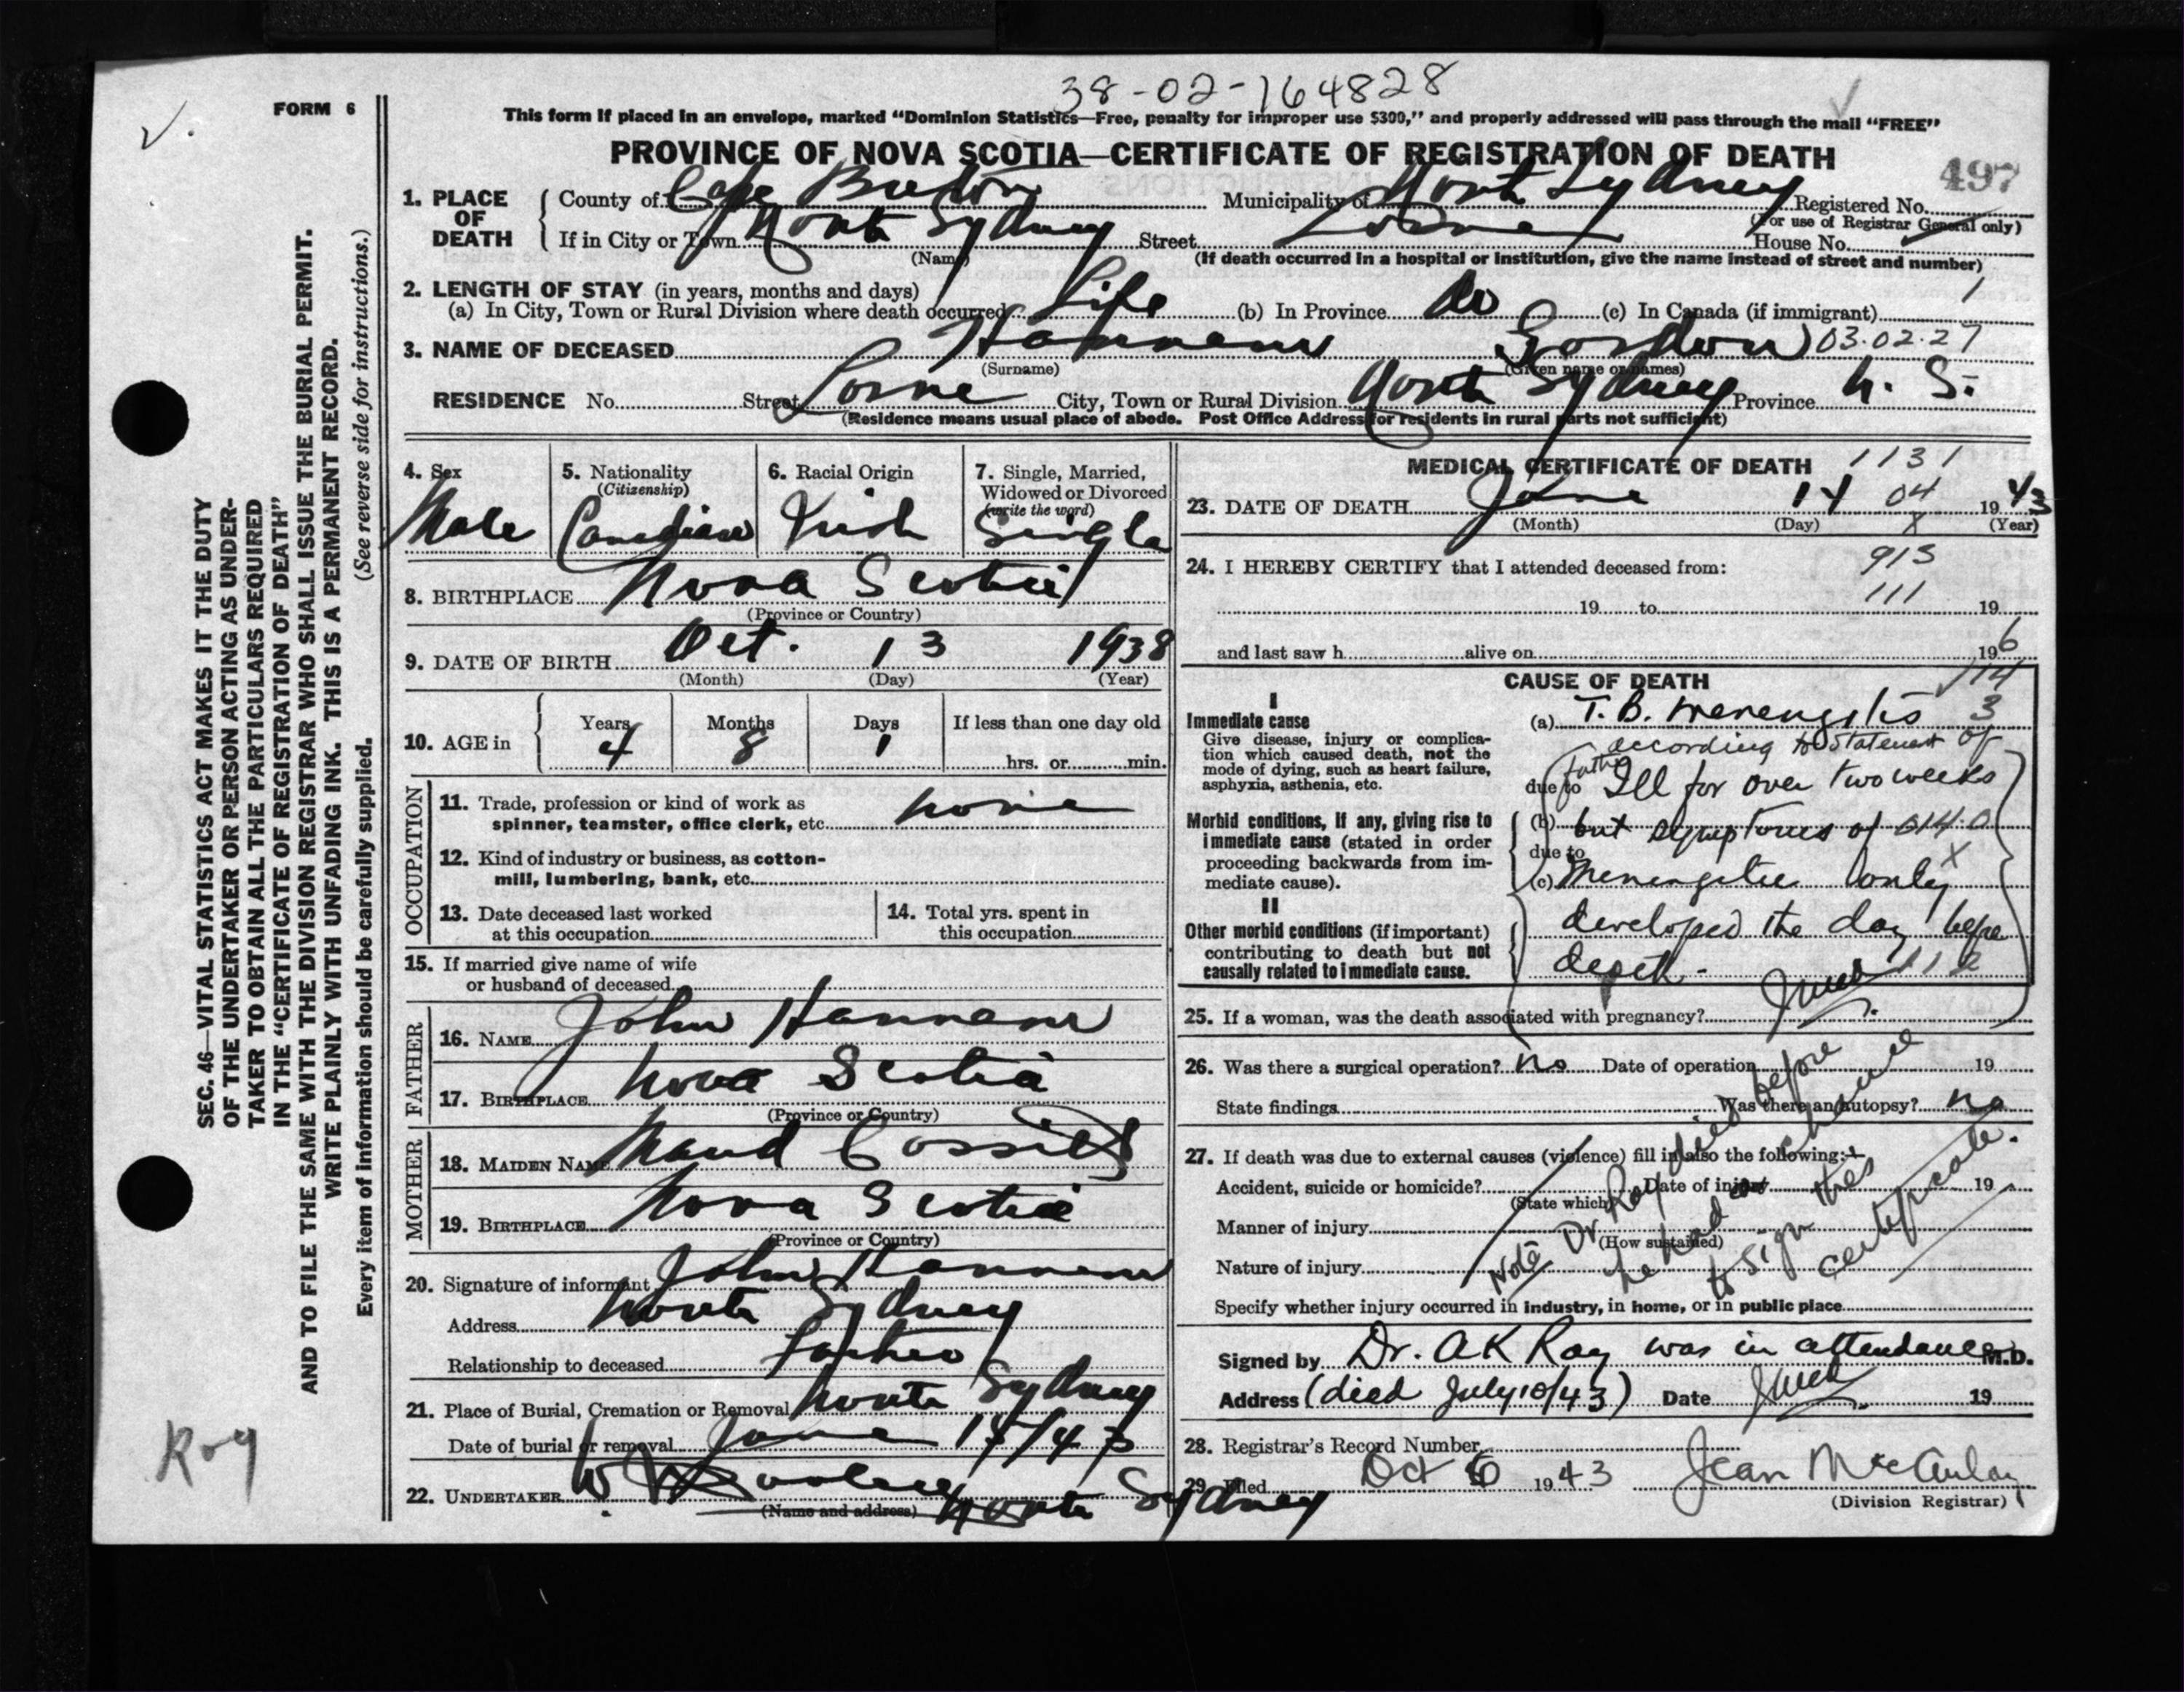 38-02-164828
FORM 6
This form if placed in an envelope, marked "Dominion Statistics—Free, penalty for improper use $300," and properly addressed will pass through the mail "FREE"
PROVINCE OF NOVA SCOTIA—CERTIFICATE OF REGISTRATION OF DEATH
497
1. PLACE OF DEATH
County of Cape Breton Municipality of North Sydney Registered No.
(For use of Registrar General only)
If in City or Town North Sydney Street Lorne House No.
(Name) (If death occurred in a hospital or institution, give the name instead of street and number)
2. LENGTH OF STAY (in years, months and days)
(a) In City, Town or Rural Division where death occurred Life (b) In Province do (c) In Canada (if immigrant) 1
3. NAME OF DECEASED Hannem Gordon 03.02.27
(Surname) (Given name or names)
RESIDENCE No. Street Lorne City, Town or Rural Division North Sydney Province N. S.
(Residence means usual place of abode. Post Office Address for residents in rural parts not sufficient)
4. Sex
Male
5. Nationality
(Citizenship)
Canadian
6. Racial Origin
Irish
7. Single, Married,
Widowed or Divorced
(write the word)
Single
8. BIRTHPLACE Nova Scotia
(Province or Country)
9. DATE OF BIRTH Oct. 13 1938
(Month) (Day) (Year)
10. AGE in
Years Months Days If less than one day old
4 8 1 hrs. or min.
OCCUPATION
11. Trade, profession or kind of work as
spinner, teamster, office clerk, etc. none
12. Kind of industry or business, as cotton-
mill, lumbering, bank, etc.
13. Date deceased last worked
at this occupation
14. Total yrs. spent in
this occupation
15. If married give name of wife
or husband of deceased
FATHER
16. NAME John Hannem
17. BIRTHPLACE Nova Scotia
(Province or Country)
MOTHER
18. MAIDEN NAME Maud Cossitt
19. BIRTHPLACE Nova Scotia
(Province or Country)
20. Signature of informant John Hannem
Address North Sydney
Relationship to deceased Father
21. Place of Burial, Cremation or Removal North Sydney
Date of burial or removal June 15/43
22. UNDERTAKER W North Sydney
(Name and address)
MEDICAL CERTIFICATE OF DEATH 1131
23. DATE OF DEATH June 14 04 1943
(Month) (Day) X (Year)
24. I HEREBY CERTIFY that I attended deceased from: 913
19 to 111 19
and last saw h alive on 19 6
CAUSE OF DEATH
114
I
Immediate cause
Give disease, injury or complica-
tion which caused death, not the
mode of dying, such as heart failure,
asphyxia, asthenia, etc.
(a) T.B. Menengitis 3
according to statement of
father
due to Ill for over two weeks
Morbid conditions, if any, giving rise to
immediate cause (stated in order
proceeding backwards from im-
mediate cause).
(b) but symptoms of 014.0
due to X
(c) Menengitis only
II
Other morbid conditions (if important)
contributing to death but not
causally related to immediate cause.
developed the day before
death.
25. If a woman, was the death associated with pregnancy?
26. Was there a surgical operation? No Date of operation 19
State findings Was there an autopsy? no
27. If death was due to external causes (violence) fill in also the following:
Accident, suicide or homicide? Date of injury 19
(State which)
Manner of injury
(How sustained)
Nature of injury
Note Dr Roy died before
he had chance
to sign this
certificate.
Specify whether injury occurred in industry, in home, or in public place
Signed by Dr. A K Roy was in attendance M.D.
Address (died July 10/43) Date 19
28. Registrar's Record Number
29. Filed Oct 1943 Jean McAulay
(Division Registrar)
SEC. 46—VITAL STATISTICS ACT MAKES IT THE DUTY
OF THE UNDERTAKER OR PERSON ACTING AS UNDER-
TAKER TO OBTAIN ALL THE PARTICULARS REQUIRED
IN THE "CERTIFICATE OF REGISTRATION OF DEATH"
AND TO FILE THE SAME WITH THE DIVISION REGISTRAR WHO SHALL ISSUE THE BURIAL PERMIT.
WRITE PLAINLY WITH UNFADING INK. THIS IS A PERMANENT RECORD.
(See reverse side for instructions.)
Every item of information should be carefully supplied.
Roy